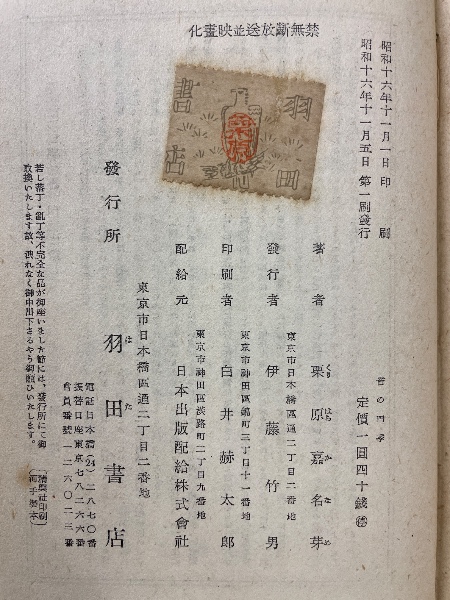 禁無斷放送並映畫化
昭和十六年十一月一日 印刷
昭和十六年十一月五日 第一刷發行
定價一圓四十錢
羽田書店
著者 栗原嘉名芽
くり はら か な め
東京市日本橋區通二丁目二番地
發行者 伊藤竹男
東京市神田區錦町三丁目十一番地
印刷者 白井赫太郎
東京市神田區淡路町二丁目九番地
配給元 日本出版配給株式會社
東京市日本橋區通二丁目二番地
發行所 羽田書店
は た
電話日本橋(24)二八七〇番
振替口座東京七八二六六番
會員番號一二六〇二三番
若し落丁・亂丁等不完全な品が御座いました節には、發行所にて御
取換いたします故、洩れなく御申出下さるやう御願ひいたします。